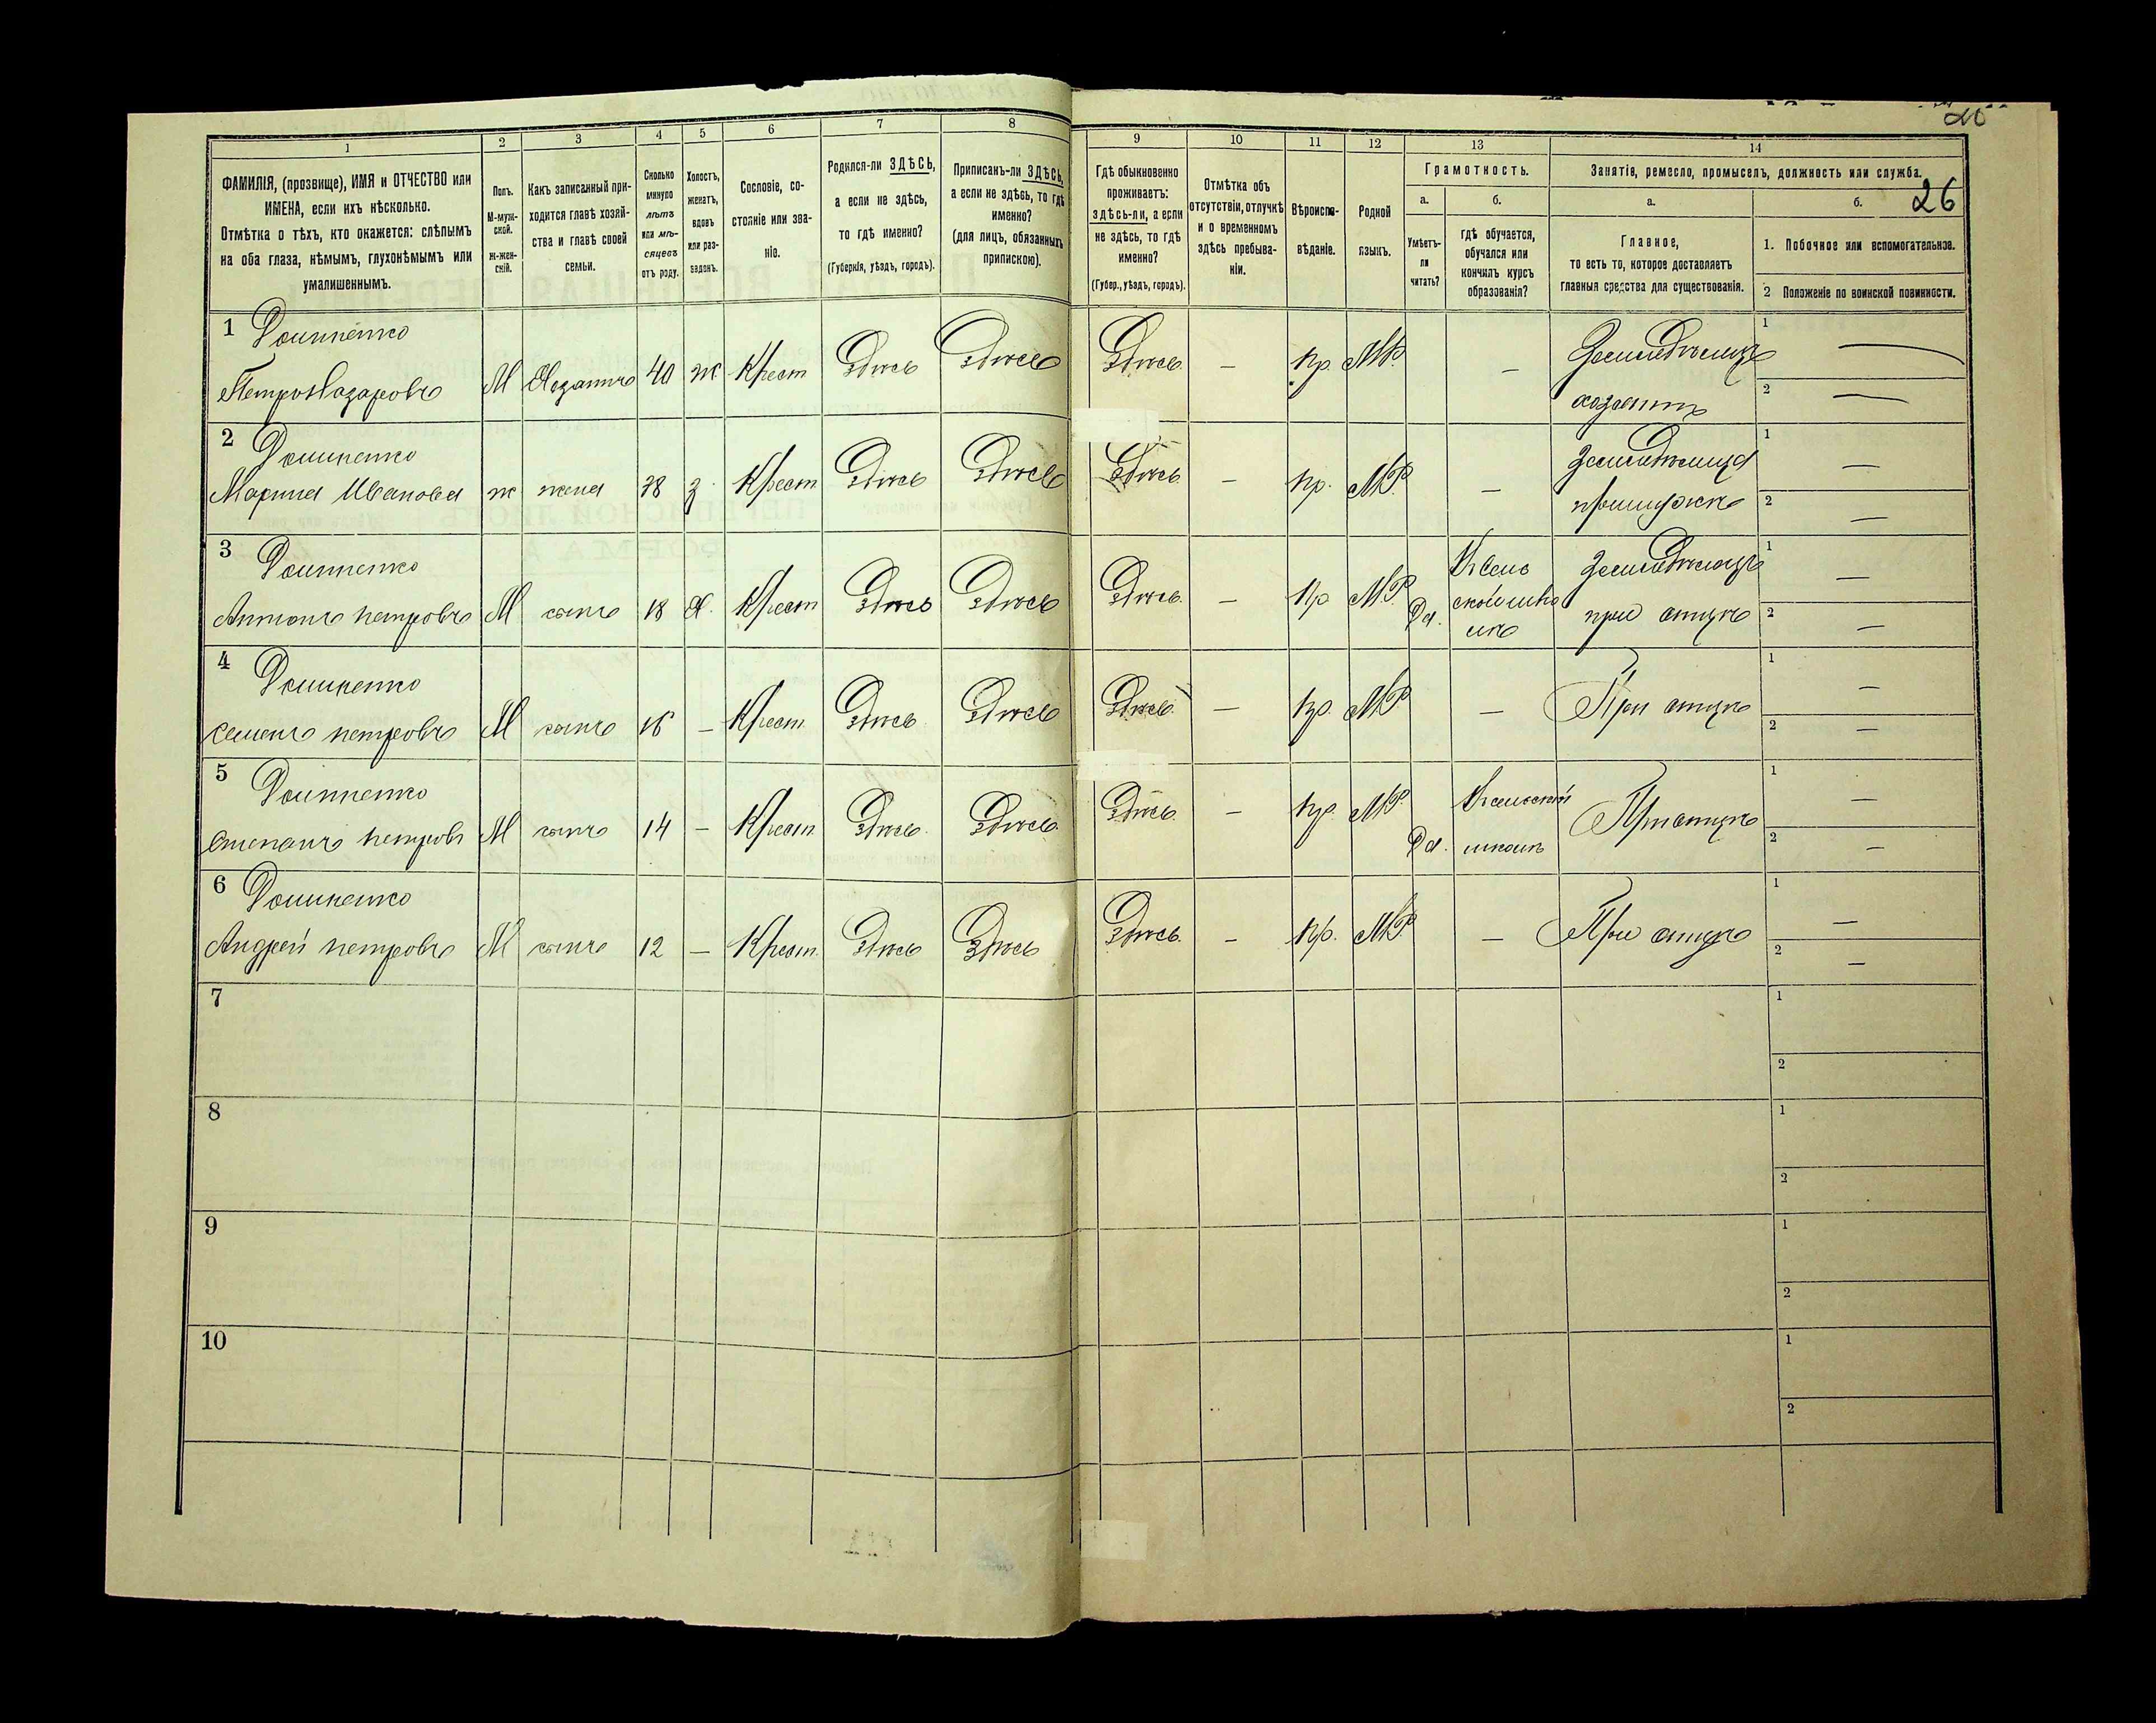 20
26
1
2
3
4
5
6
7
8
9
10
11
12
13
14
ФАМИЛІЯ, (прозвище), ИМЯ и ОТЧЕСТВО или
ИМЕНА, если ихъ нѣсколько.
Отмѣтка о тѣхъ, кто окажется: слѣпымъ
на оба глаза, нѣмымъ, глухонѣмымъ или
умалишеннымъ.
Полъ.
М-муж-
ской.
Ж-жен-
скій.
Какъ записанный при-
ходится главѣ хозяй-
ства и главѣ своей
семьи.
Сколько
минуло
лѣтъ
или мѣ-
сяцевъ
отъ роду.
Холостъ,
женатъ,
вдовъ
или раз-
веденъ.
Сословіе, со-
стояніе или зва-
ніе.
Родился-ли ЗДѢСЬ,
а если не здѣсь,
то гдѣ именно?
(Губернія, уѣздъ, городъ).
Приписанъ-ли ЗДѢСЬ,
а если не здѣсь, то гдѣ
именно?
(для лицъ, обязанныхъ
припискою).
Гдѣ обыкновенно
проживаетъ:
здѣсь-ли, а если
не здѣсь, то гдѣ
именно?
(Губер., уѣздъ, городъ).
Отмѣтка объ
отсутствіи, отлучкѣ
и о временномъ
здѣсь пребыва-
ніи.
Вѣроиспо-
вѣданіе.
Родной
языкъ.
Грамотность.
а.
Умѣетъ-
ли
читать?
б.
гдѣ обучается,
обучался или
кончилъ курсъ
образованія?
Занятіе, ремесло, промыселъ, должность или служба.
а.
Главное,
то есть то, которое доставляетъ
главныя средства для существованія.
б.
1. Побочное или вспомогательное.
2 Положеніе по воинской повинности.
1 Доминенко
Петръ Назаровъ М Хозяинъ 40 ж Крест Здѣсь Здѣсь Здѣсь — пр. М.Р. — Земледѣлецъ 1 —
хозяинъ 2 —
2 Доминенко
Марина Иванова ж жена 38 з. Крест Здѣсь Здѣсь Здѣсь — пр. М.Р. — 1 —
2 —
3 Доминенко
Антонъ Петровъ М сынъ 18 Х. Крест Здѣсь Здѣсь Здѣсь — пр М.Р. Да. Земледѣлецъ 1 —
при отцѣ 2 —
4 Доминенко
Семенъ Петровъ М сынъ 16 — Крест. Здѣсь Здѣсь Здѣсь — пр. М.Р — При отцѣ 1 —
2 —
5 Доминенко
Степанъ Петровъ М сынъ 14 — Крест. Здѣсь Здѣсь Здѣсь — пр. М.Р. Да. При отцѣ 1 —
школѣ 2 —
6 Доминенко
Андрей Петровъ М сынъ 12 — Крест. Здѣсь Здѣсь Здѣсь — пр. М.Р — При отцѣ 1 —
2 —
7 1
2
8 1
2
9 1
2
10 1
2